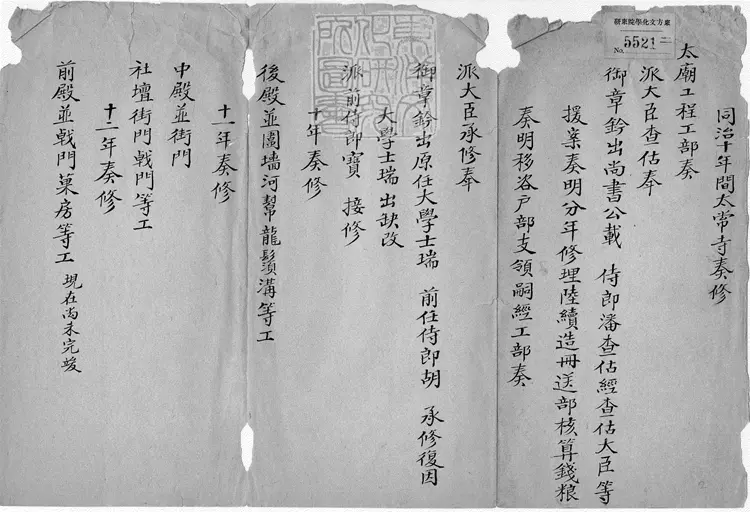 東方文化學院東京
No. 5521
同治十年間太常寺奏修
太廟工程工部奏
派大臣查估奉
御章鈐出尚書公載 侍郎潘查估經查估大臣等
援案奏明分年修理陸續造冊送部核算錢粮
奏明移咨戶部支領嗣經工部奏
派大臣承修奉
御章鈐出原任大學士瑞 前任侍郎胡 承修復因
大學士瑞出缺改
派前侍郎寶 接修
十年奏修
後殿並圍墻河幫龍鬚溝等工
十一年奏修
中殿並街門
社壇街門戟門等工
十二年奏修
前殿並戟門菓房等工 現在尚未完竣